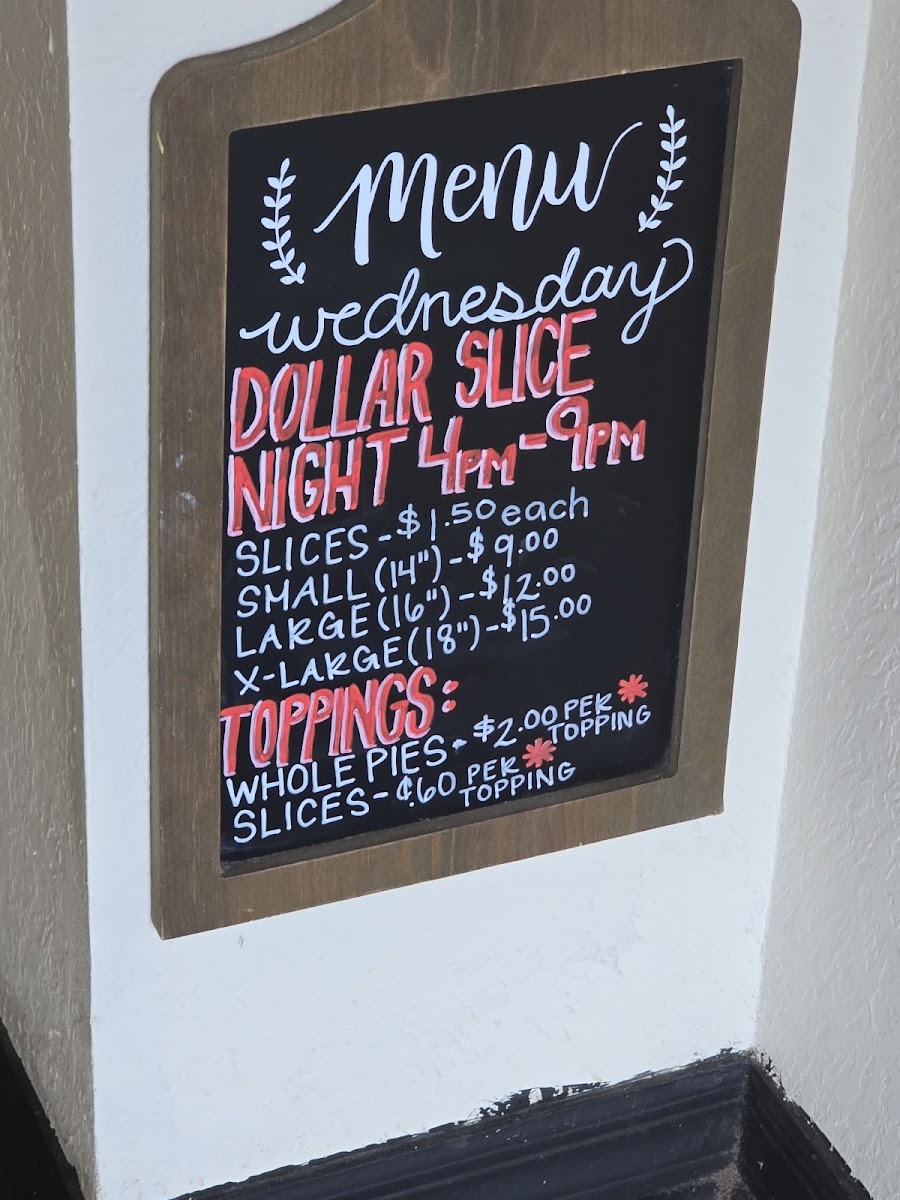 Menu
wednesday
DOLLAR SLICE
NIGHT 4PM-9PM
SLICES-$1.50 each
SMALL (14")-$9.00
LARGE (16")-$12.00
X-LARGE (18")-$15.00
TOPPINGS:
WHOLE PIES- $2.00 PER * TOPPING
SLICES-¢.60 PER * TOPPING